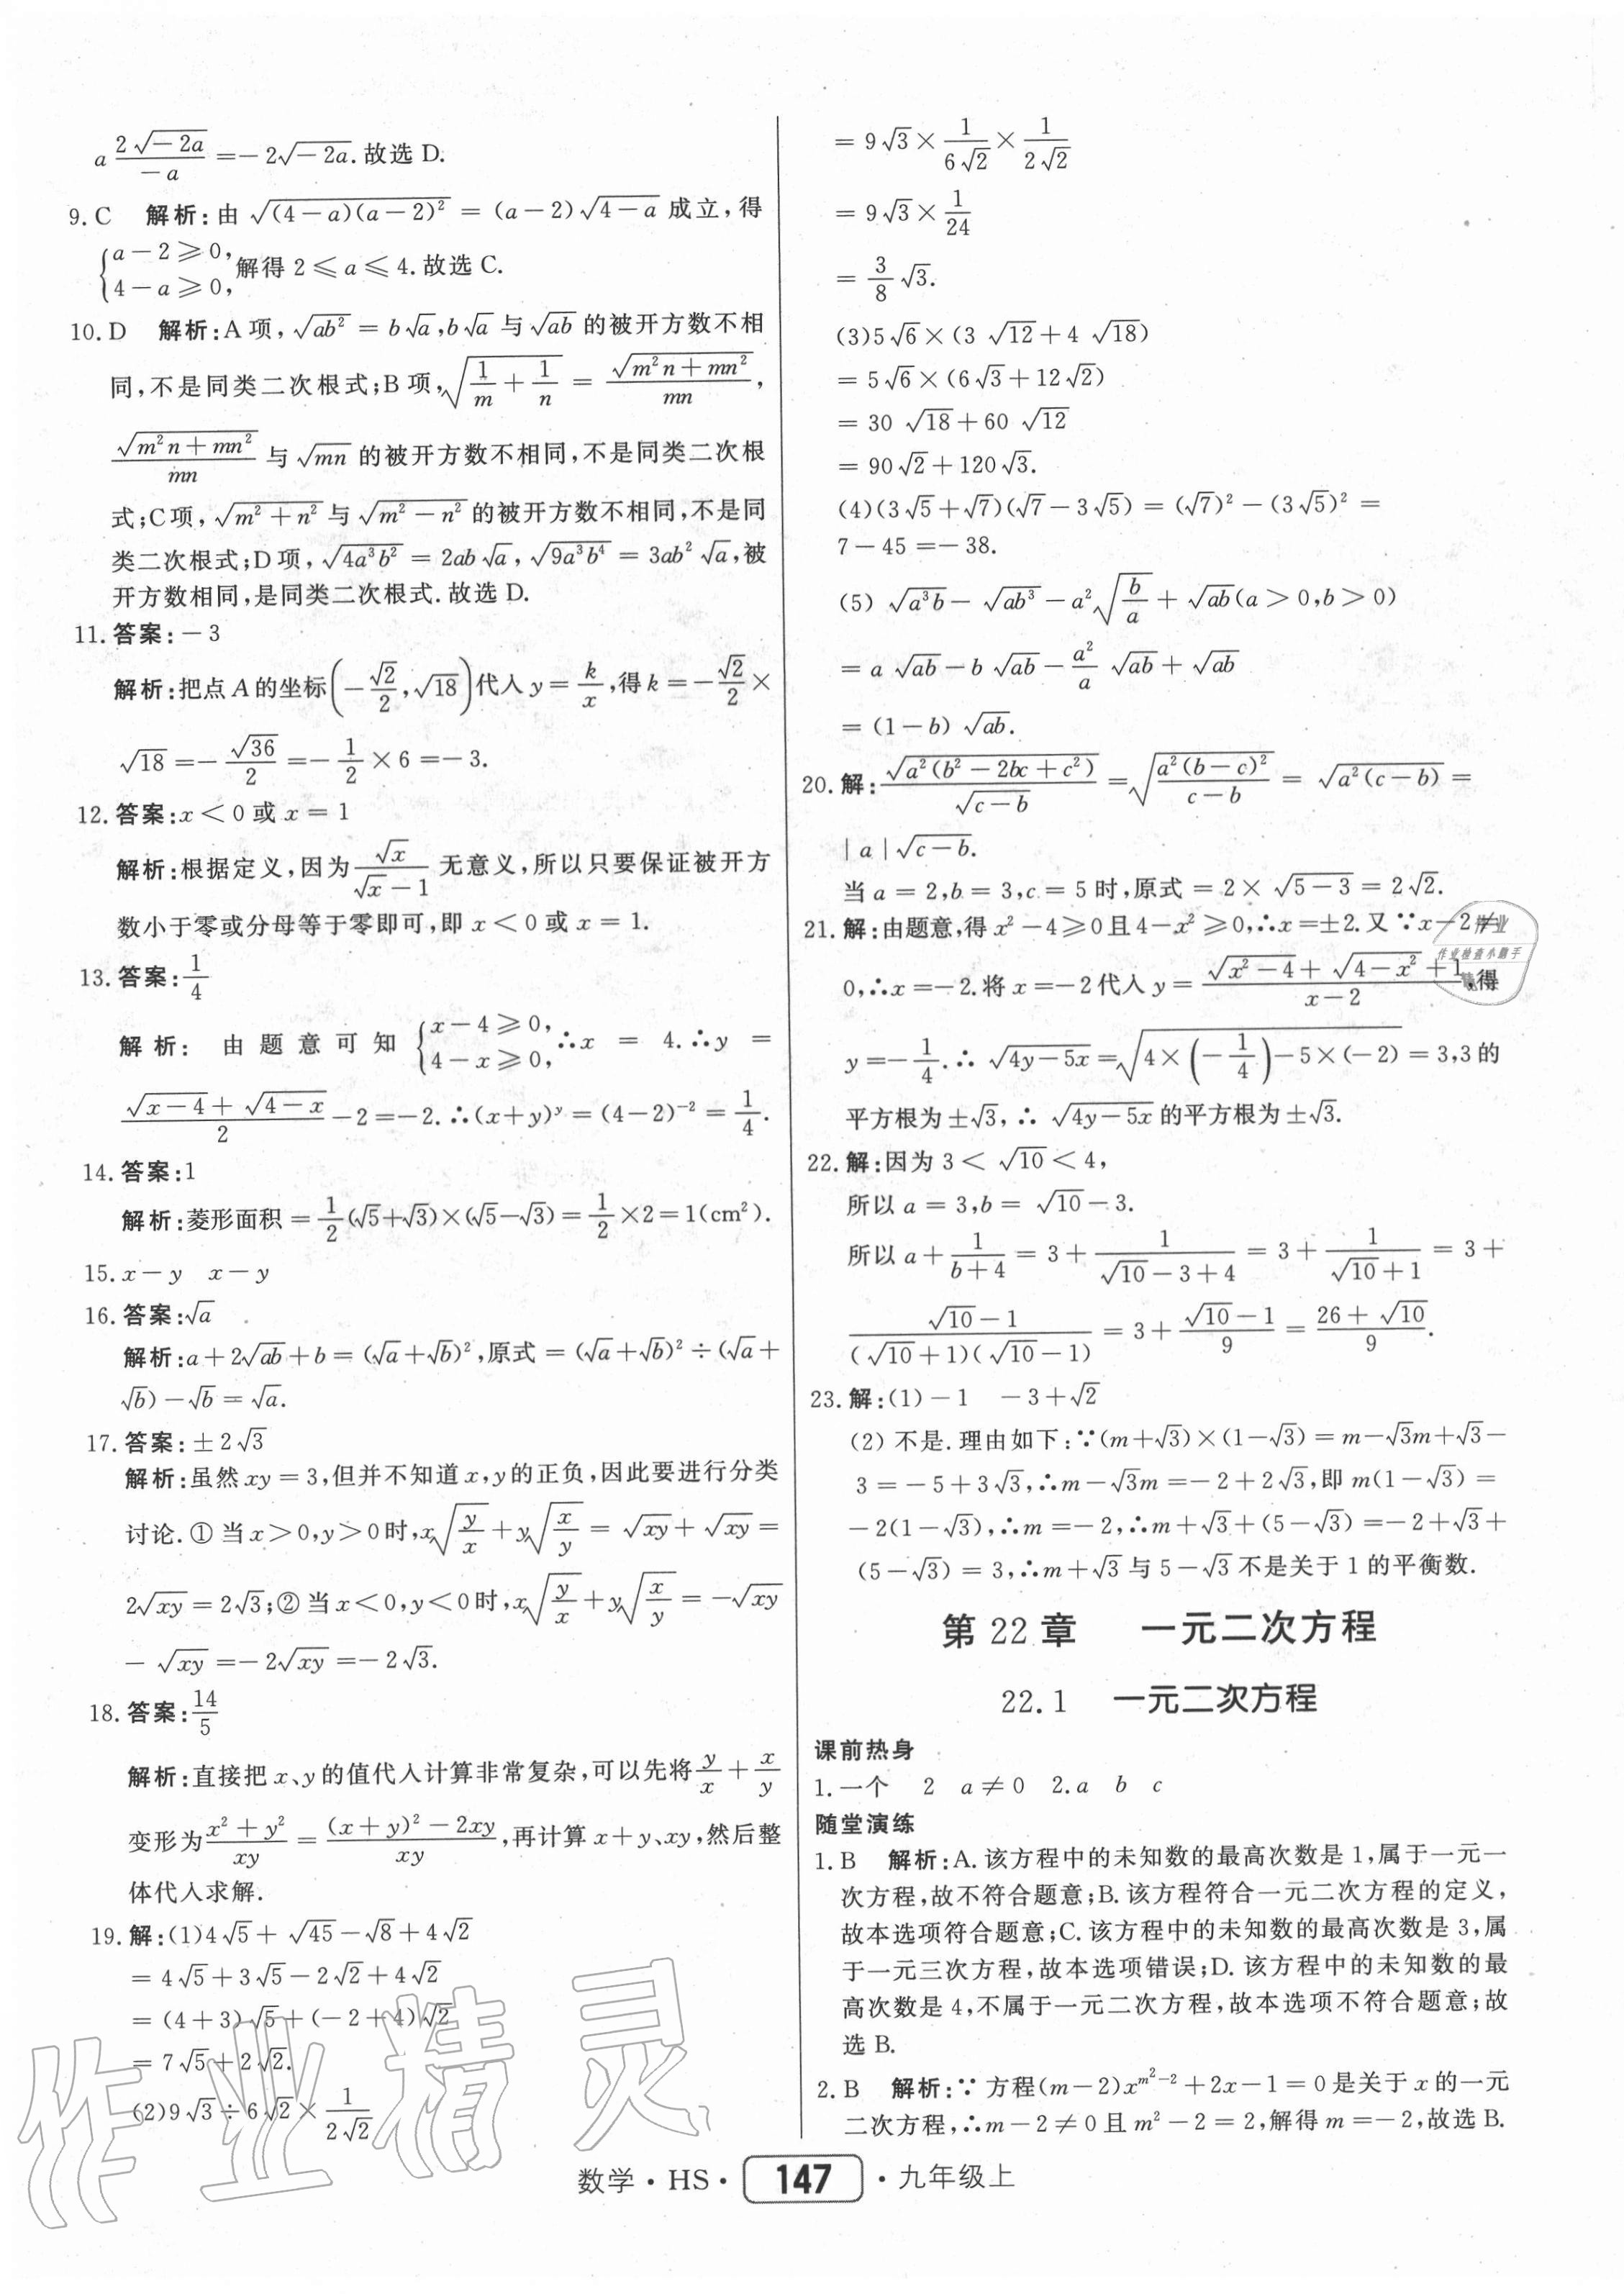 a 2√(-2a)/(-a) =-2√(-2a).故选 D.
9. C 解析:由 √((4-a)(a-2)²) = (a-2)√(4-a) 成立,得
{a-2≥0, 4-a≥0, 解得 2≤a≤4.故选 C.
10. D 解析:A 项, √(ab²) = b√a, b√a 与 √(ab) 的被开方数不相
同,不是同类二次根式;B 项, √(1/m + 1/n) = √(m²n+mn²)/mn,
√(m²n+mn²)/mn 与 √(mn) 的被开方数不相同,不是同类二次根
式;C 项, √(m²+n²) 与 √(m²-n²) 的被开方数不相同,不是同
类二次根式;D 项, √(4a³b²) = 2ab√a, √(9a³b⁴) = 3ab²√a,被
开方数相同,是同类二次根式.故选 D.
11. 答案:-3
解析:把点 A 的坐标(-√2/2, √18)代入 y = k/x,得 k = -√2/2 ×
√18 =-√36/2 =-1/2 × 6 =-3.
12. 答案:x<0 或 x=1
解析:根据定义,因为 √x/(√x-1) 无意义,所以只要保证被开方
数小于零或分母等于零即可,即 x<0 或 x=1.
13. 答案:1/4
解析: 由题意可知 {x-4≥0, 4-x≥0, ∴x = 4.∴y =
(√(x-4)+√(4-x))/2 -2=-2.∴(x+y)^y=(4-2)⁻²=1/4.
14. 答案:1
解析:菱形面积=1/2(√5+√3)×(√5-√3)=1/2×2=1(cm²).
15. x-y x-y
16. 答案:√a
解析:a+2√(ab)+b=(√a+√b)²,原式=(√a+√b)²÷(√a+
√b)-√b=√a.
17. 答案:±2√3
解析:虽然 xy=3,但并不知道 x,y 的正负,因此要进行分类
讨论.①当 x>0,y>0 时,x√(y/x)+y√(x/y)=√(xy)+√(xy)=
2√(xy)=2√3;②当 x<0,y<0 时,x√(y/x)+y√(x/y)=-√(xy)
-√(xy)=-2√(xy)=-2√3.
18. 答案:14/5
解析:直接把 x、y 的值代入计算非常复杂,可以先将 y/x + x/y
变形为 (x²+y²)/xy = ((x+y)²-2xy)/xy,再计算 x+y、xy,然后整
体代入求解.
19. 解:(1)4√5+√45-√8+4√2
=4√5+3√5-2√2+4√2
=(4+3)√5+(-2+4)√2
=7√5+2√2.
(2)9√3÷6√2×1/(2√2)
=9√3×1/(6√2)×1/(2√2)
=9√3×1/24
=3/8 √3.
(3)5√6×(3√12+4√18)
=5√6×(6√3+12√2)
=30√18+60√12
=90√2+120√3.
(4)(3√5+√7)(√7-3√5)=(√7)²-(3√5)²=
7-45=-38.
(5)√(a³b)-√(ab³)-a²√(b/a)+√(ab)(a>0,b>0)
=a√(ab)-b√(ab)-a²/a √(ab)+√(ab)
=(1-b)√(ab).
20. 解:√(a²(b²-2bc+c²))/√(c-b) = √(a²(b-c)²/(c-b)) = √(a²(c-b)) =
|a|√(c-b).
当 a=2,b=3,c=5 时,原式=2×√(5-3)=2√2.
21. 解:由题意,得 x²-4≥0 且 4-x²≥0,∴x=±2.又∵x-2≠
0,∴x=-2.将 x=-2 代入 y=(√(x²-4)+√(4-x²)+1)/(x-2),得
y=-1/4.∴√(4y-5x)=√(4×(-1/4)-5×(-2))=3,3 的
平方根为±√3,∴√(4y-5x)的平方根为±√3.
22. 解:因为 3<√10<4,
所以 a=3,b=√10-3.
所以 a+1/(b+4)=3+1/(√10-3+4)=3+1/(√10+1)=3+
(√10-1)/((√10+1)(√10-1))=3+(√10-1)/9=(26+√10)/9.
23. 解:(1)-1 -3+√2
(2)不是.理由如下:∵(m+√3)×(1-√3)=m-√3m+√3-
3=-5+3√3,∴m-√3m=-2+2√3,即 m(1-√3)=
-2(1-√3),∴m=-2,∴m+√3+(5-√3)=-2+√3+
(5-√3)=3,∴m+√3 与 5-√3 不是关于 1 的平衡数.
第 22 章 一元二次方程
22.1 一元二次方程
课前热身
1. 一个 2 a≠0 2. a b c
随堂演练
1. B 解析:A.该方程中的未知数的最高次数是 1,属于一元一
次方程,故不符合题意;B.该方程符合一元二次方程的定义,
故本选项符合题意;C.该方程中的未知数的最高次数是 3,属
于一元三次方程,故本选项错误;D.该方程中的未知数的最
高次数是 4,不属于一元二次方程,故本选项不符合题意;故
选 B.
2. B 解析:∵方程(m-2)x^(m²-2)+2x-1=0 是关于 x 的一元
二次方程,∴m-2≠0 且 m²-2=2,解得 m=-2,故选 B.
作业
作业检查小助手
作业精灵
数学·HS·147·九年级上